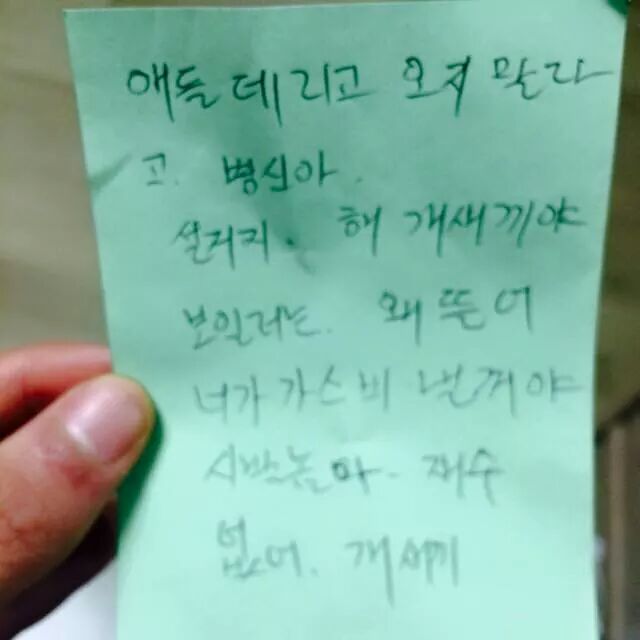 애들 데리고 오지 말라
고. 병신아.
설거지. 해 개새끼야
보일러는. 왜 뜯어
너가 가스비 낼꺼야
시발놈아. 재수
없어. 개새끼